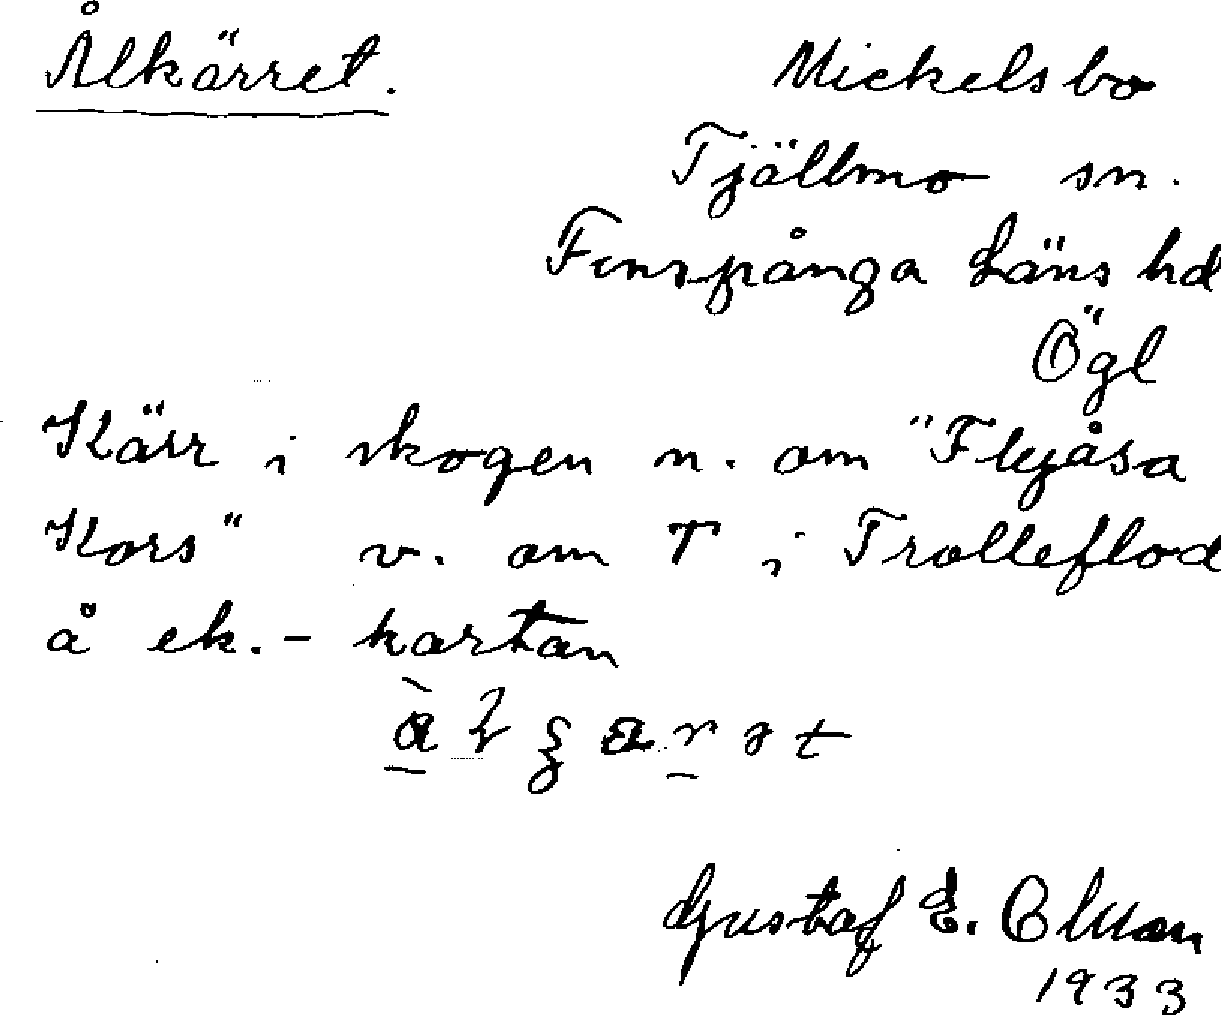 Ålkärret.
Mickelsbo
Tjällmo sn.
Finspånga Läns hd
Ögl
Kärr i skogen n. om "Flyåsa
Kors" v. om T i Trolleflod
å ek.- kartan
Gustaf E.
1933